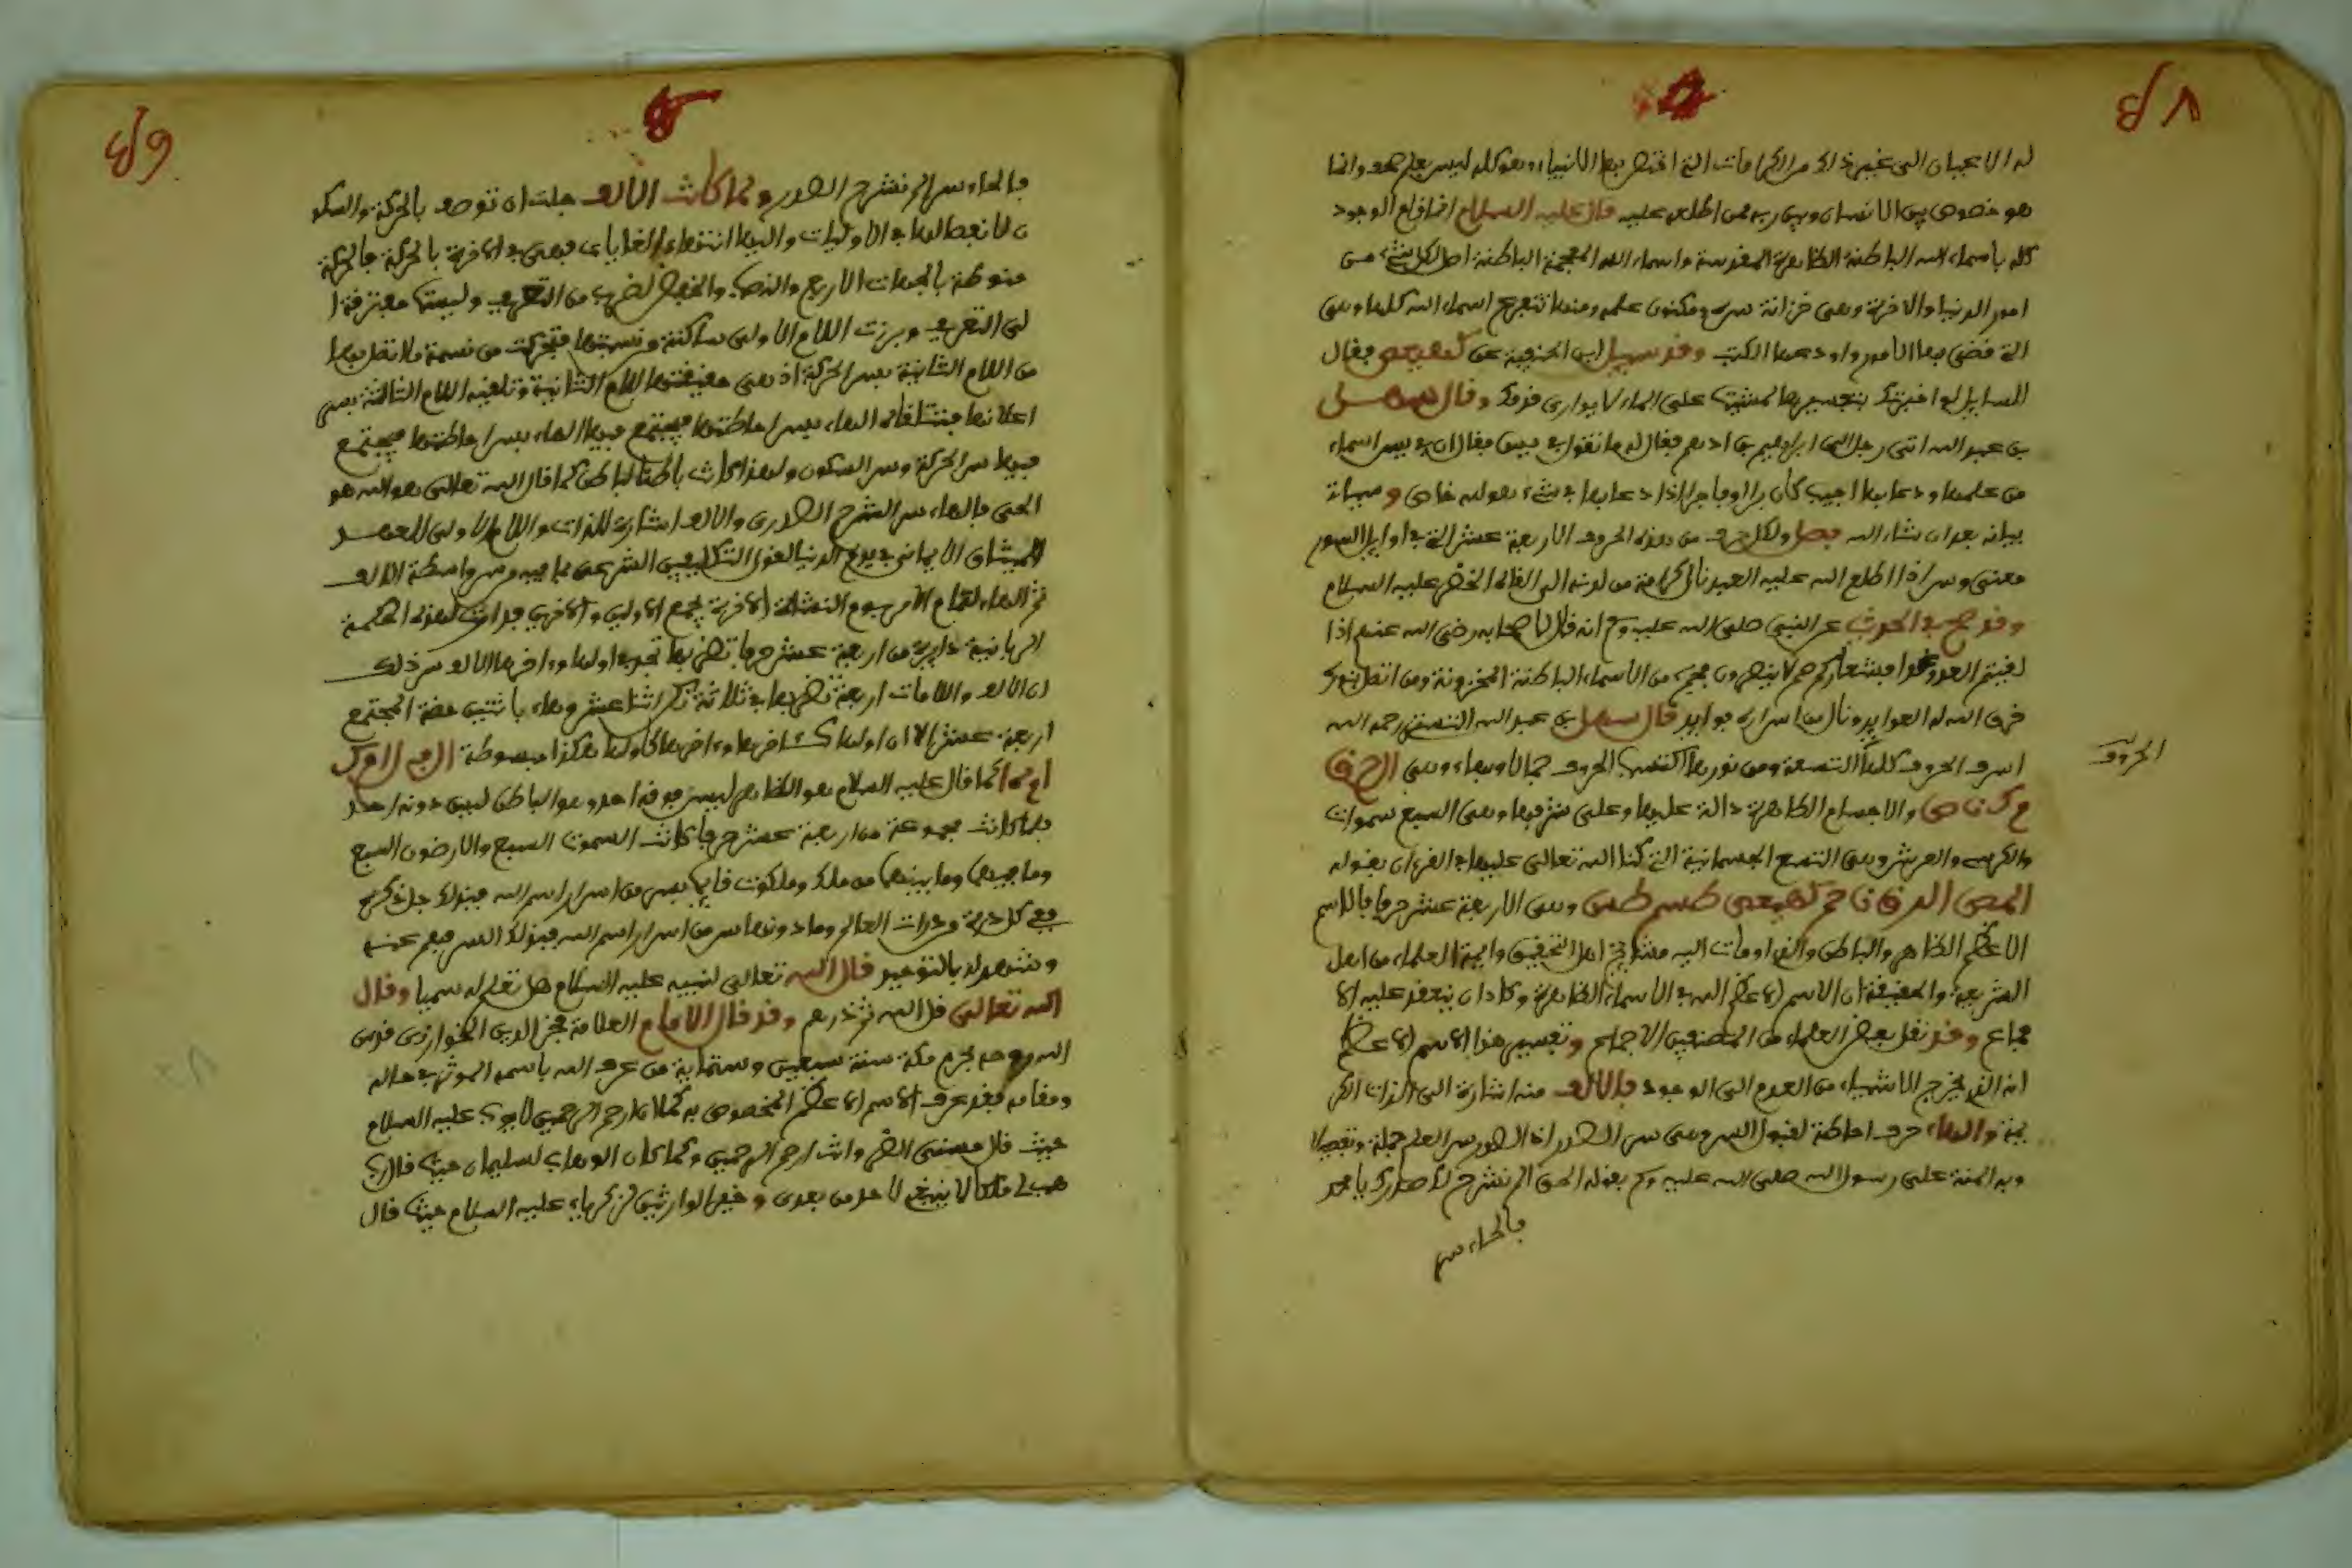 ٤٨
له الاعيان الى غير ذلك من الكرامات التي اختص بها الانبياء وهو كله ليس بعلم وانما
هو خصوص بين الانسان وبين ربه فمن اطلع عليه قال عليه السلام انما قام الوجود
كله باسماء الله الباطنة الظاهرة المقدسة واسماء الله المعجمة الباطنة اصل لكل شيء من
امور الدنيا والاخرة وهى خزانة سره ومكنون علمه ومنها تتفرع اسماء الله كلها وهى
التي قضى بها الامور واودعها الكتب وقد سئل ابن الحنفية عن كهيعص فقال
للسايل لو اخبرتك بتفسيرها لمشيت على الماء لا يوارى قدمك وقال سهل
بن عبد الله اتى رجل الى ابراهيم بن ادهم فقال له ما تقول في يس فقال ان في يس اسما
من علمها ودعا بها اجيب كان برا او فاجرا اذا دعا بها في شيء هو له خاص وسياتى
بيانه بعد ان شاء الله فصل ولكل حرف من هذه الحروف الاربعة عشر التي في اوايل السور
معنى وسر اذا اطلع الله عليه العبد نال كرامة من لدنه الى الخضر عليه السلام
وقد صح في الحديث عن النبي صلى الله عليه وسلم انه قال لاصحابه رضى الله عنهم اذا
لقيتم العدو غدا فشعاركم حم لا ينصرون فحم من الاسماء الباطنة المخزونة ومن اتصل بنورك
خرق الله له العوايد ونال من اسراره فوايد قال سهل بن عبد الله التستري رحمه الله
اشرف الحروف كلها التسعة ومن نورها اكتسب الحروف جمالا وبهاء وهى ال ح ق
م ك ن ا ص والاجسام الظاهرة دالة عليها وعلى شرفها وهى السبع سموات
والكرسي والعرش وهى التسع الجسمانية التي كنا الله تعالى عليها في القرءان بقوله
المص الر ق ن حم كهيعص طسم طس وهى الاربعة عشر حرفا فالاسم
الاعظم الظاهر والباطن والذي اومات اليه مشايخ اهل التحقيق وايمة العلماء من اهل
الشريعة والحقيقة ان الاسم الاعظم الله في الاسماء الظاهرة وكاد ان ينعقد عليه الا
جماع وقد نقل بعض العلماء من المصنفين الاجماع وتفسير هذا الاسم الاعظم
انه الذي يخرج الاشياء من العدم الى الوجود فالالف منه اشارة الى الذات الكر
يمة والهاء حرف احاطة لقبول السر وهى سر الصدر اذ الصدور سر العلم جملة وتفصيلا
وبه المنة على رسول الله صلى الله عليه وسلم بقوله الحق الم نشرح لك صدرك يا محمد
فالحاء سر
الحروف
٤٩
فالحاء سر الم نشرح الصدر ولما كانت الالف جلت ان توصف بالحركة والسكو
ن لانفصالها في الاوليات واليها انتهاء الغايات فهى في الاخرة بالحركة فالحركة
منوطة بالجهات الاربع والنصب والخفض لضرب من التعريف وليست مفتقرة ا
لى التعريف وبرزت اللام الاولى ساكنة ونسبتها فتحركت من نسبة ملا تصر بها
من اللام الثانية بسر الحركة اذ هى حقيقتها اللام الثانية وتلقيه اللام الثالثة بسر
اعلانها فتتلقاه الهاء بسر احاطتها فيجتمع فيها الهاء بسر احاطتها فيجتمع
فيها سر الحركة وسر السكون ولهذا كانت باطنا لباطن كما قال الله تعالى هو الله هو
الحى فالهاء سر الشرح الصدرى والالف اشارة للذات واللام الاولى للعهد
الميثاق الايمانى في يوم الدنيا لقول التكليف الشرعى بما فيه وسر واسطة الالف
ثم الهاء لتمام الامر يوم النشاة الاخرة لجمع الاولين والاخرين فدارت لهذه الحكمة
الربانية دايرة من اربعة عشر حرفا تضربها تجد اولها واخرها الالف سر ذلك
ان الالف واللامات اربعة تضربها في ثلاثة تكن اثنا عشر وهاء باثنين هذه المجتمع
اربعة عشر الا ان اولها كاخرها واخرها كاولها هكذا مبسوطة ال ف ل ا م ل
ا م ه ا كما قال عليه السلام هو الظاهر ليس فوقه احد وهو الباطن ليس دونه احد
فلما كانت مجموعة من اربعة عشر حرفا كانت السموت السبع والارضون السبع
وما فيها وما بينها من ملك وملكوت قايم بسر من اسرار اسم الله فبذلك جل ذكره
ففى كل ذرة من ذرات العالم وما دونها سر من اسرار اسم الله فبذلك السر فهم عنه
وشهد له بالتوحيد قال الله تعالى لنبيه عليه السلام هل تعلم له سميا وقال
الله تعالى قل الله ثم ذرهم وقد قال الامام العلامة فخر الدين الخوارزمى قدس
الله روحه بحرم مكة سنة سبعين وستماية من عرف الله باسمه الموثر في حاله
ومقامه فقد عرف الاسم الاعظم المخصوص به كما كان ارحم الرحمين لايوب عليه السلام
حيث قال مسنى الضر وانت ارحم الرحمين وكما كان الوهاب لسليمان حيث قال رب
هب لى ملكا لا ينبغي لاحد من بعدى وخير الوارثين لزكرياء عليه السلام حيث قال